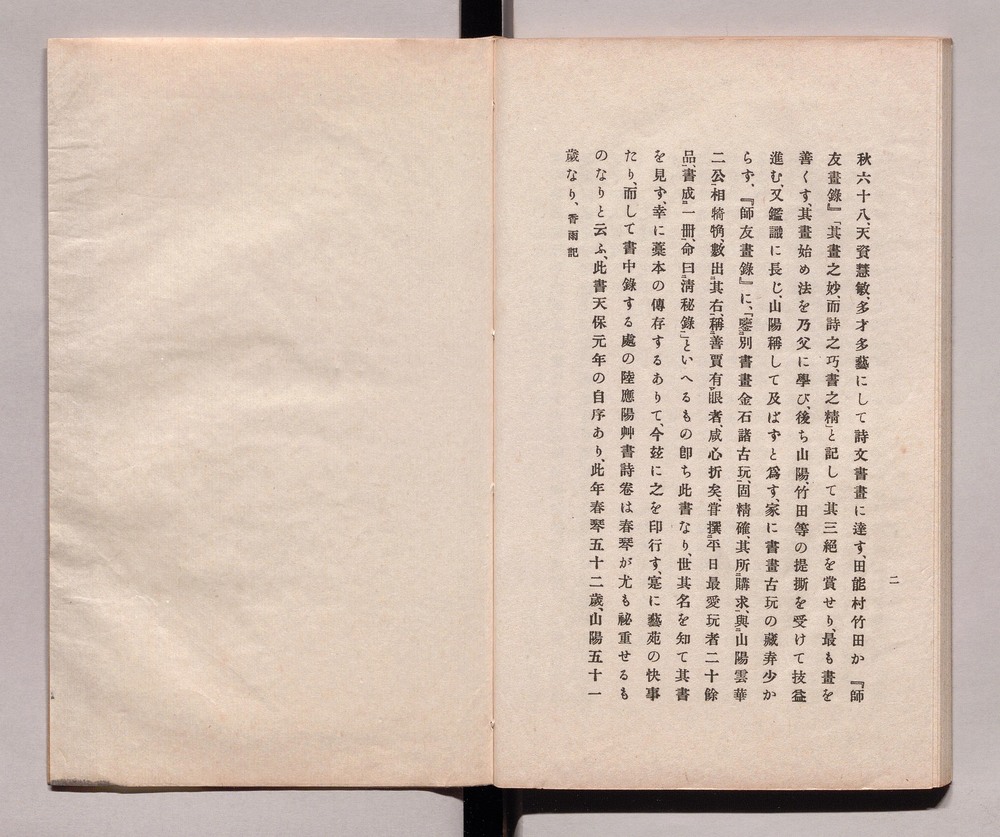 二
秋六十八、天資慧敏、多才多藝にして詩文書畫に達す、田能村竹田か『師
友畫錄』「其畫之妙、而詩之巧、書之精」と記して其三絕を賞せり、最も畫を
善くす、其畫始め法を乃父に學び、後ち山陽、竹田等の提撕を受けて技益
進む、又鑑識に長じ、山陽稱して及ばずと爲す、家に書畫古玩の藏弆少か
らず、『師友畫錄』に、「鑒別書畫金石諸古玩、固精確、其所購求、與山陽雲華
二公相犄角、數出其右、稱善賈有眼者、咸心折矣、甞撰平日最愛玩者二十餘
品、書成一冊、命曰清秘錄」といへるもの卽ち此書なり、世其名を知て其書
を見ず、幸に藁本の傳存するありて、今玆に之を印行す、寔に藝苑の快事
たり、而して書中錄する處の陸應陽艸書詩卷は春琴が尤も祕重せるも
のなりと云ふ、此書天保元年の自序あり、此年春琴五十二歲、山陽五十一
歲なり、香雨記